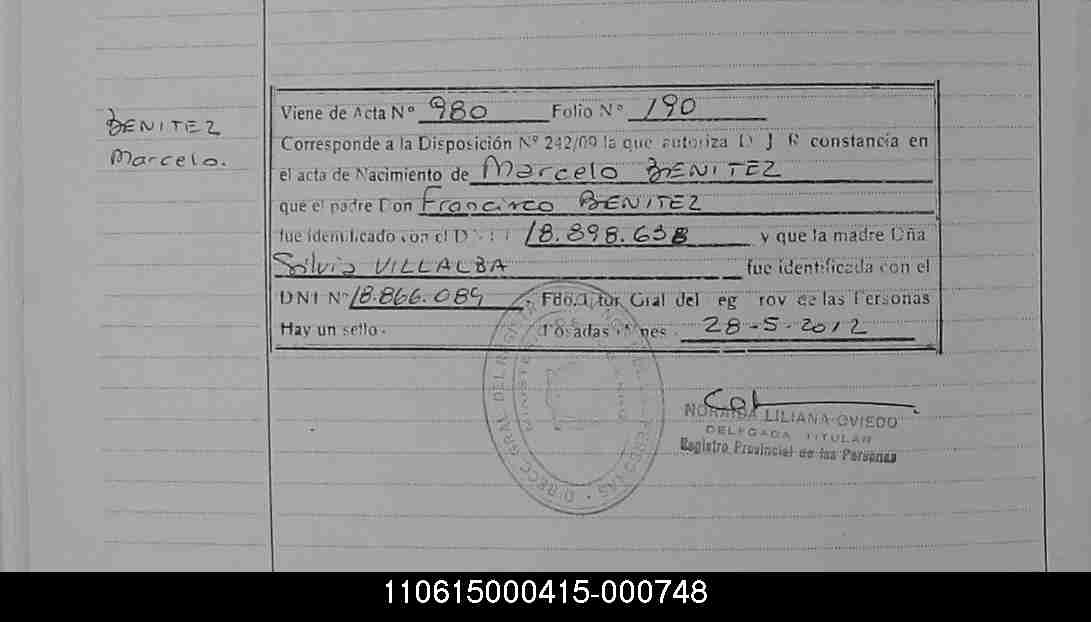 BENITEZ
Marcelo.
Viene de Acta Nº 980 Folio Nº 190
Corresponde a la Disposición Nº 242/09 la que autoriza D J R constancia en
el acta de Nacimiento de Marcelo BENITEZ
que el padre Don Francisco BENITEZ
fue identificado con el D N I 18.898.638 y que la madre Dña
Silvia VILLALBA fue identificada con el
DNI Nº 18.866.089 Gral del eg rov de las Personas
Hay un sello. Posadas Mnes. 28-5-2012
DIRECC GRAL DEL PERSONAS
NORAIDA LILIANA OVIEDO
DELEGADA TITULAR
Registro Provincial de las Personas
110615000415-000748